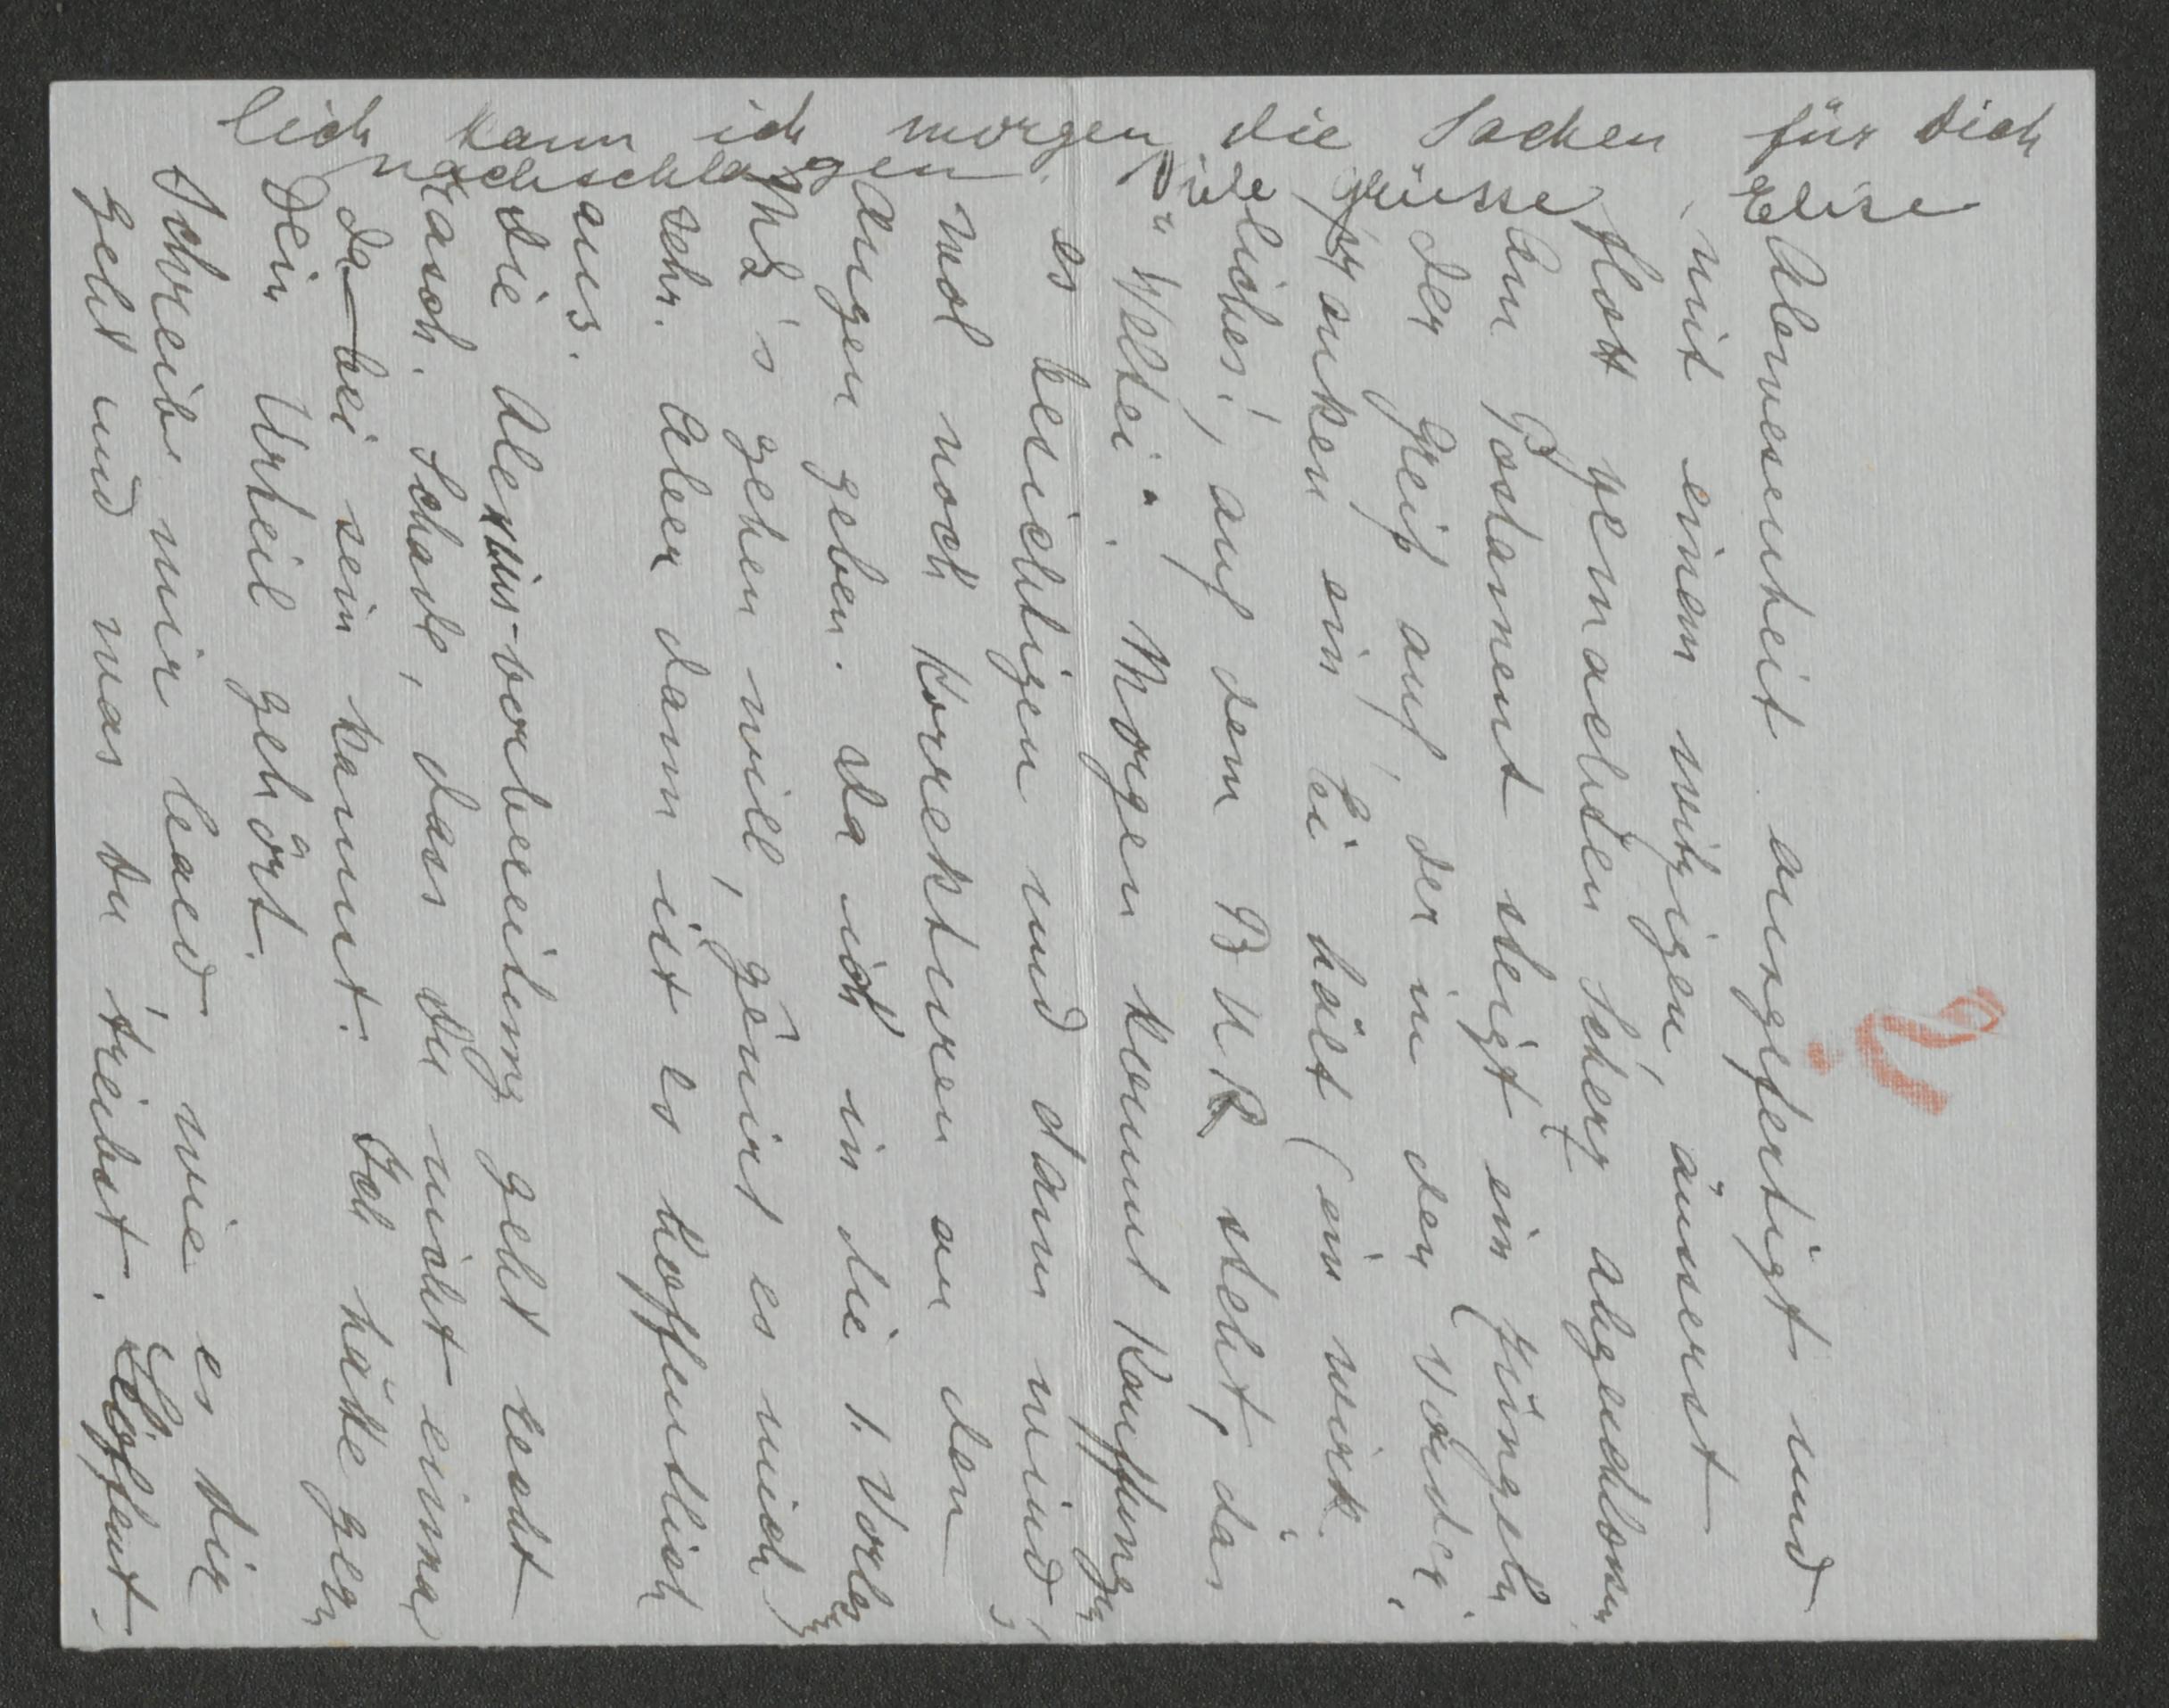 2.
Abwesenheit ausgefertigt und
mit einem witzigen, äusserst
flott gemachten Scherz abgeschlossen.
Am Postament steigt ein Jüngeln
der Greif auf, der in den Vorder
ein Ei hält (ein wirk
liches!, auf dem B U R steht, das
"Weltei". Morgen kommt Kauffungen
es besichtigen und dann wird's
wol noch Korrekturen an den
Augen geben. Da ich in die 1. Vorles
M's gehen will, genirt es mich
sehr. Aber dann ist es hoffentlich
aus.
Die Album-vorbereitung geht recht
rasch. Schade, dass du nicht einmal
da-bei sein kannst. Ich hätte gern
Dein Urteil gehört.
Schreibe mir bald wie es dir
geht und was du treibst. Hoffent-
lich kann ich morgen die Sachen für dich
nachschlagen. Viele Grüsse Elise